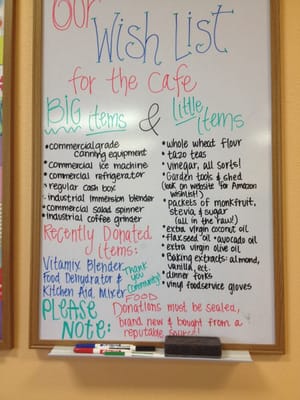 Our
Wish List
for the Cafe
BIG items & little items
• commercial grade
canning equipment
• Commercial ice machine
• commercial refrigerator
• regular cash box
• industrial immersion blender
• commercial salad spinner
• industrial coffee grinder
Recently Donated
items:
Vitamix Blender
Food Dehydrator &
Kitchen Aid Mixer
Thank
you
Community!
• whole wheat flour
• tazo teas
• vinegar, all sorts!
• Garden tools & shed
(look on website for Amazon
wishlist!)
• packets of monkfruit,
stevia & sugar
(all in the raw!)
• extra virgin coconut oil
• flaxseed oil • avocado oil
• extra virgin olive oil
• Baking extracts: almond,
vanilla, ect.
• dinner forks
• vinyl foodservice gloves
PLEASE
Note:
FOOD
Donations must be sealed,
brand new & bought from a
reputable source!